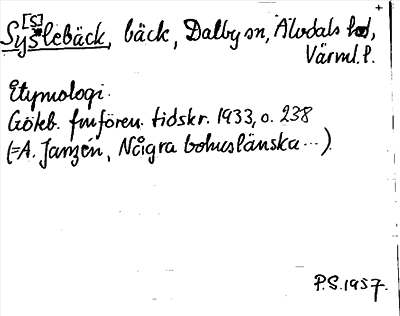 +
[S]
Syslebäck, bäck, Dalby sn, Älvdals hd,
Värml. l.
Etymologi.
Göteb. fmfören. tidskr. 1933, s. 238
(= A. Janzén, Några bohuslänska...).
P.S. 1957.